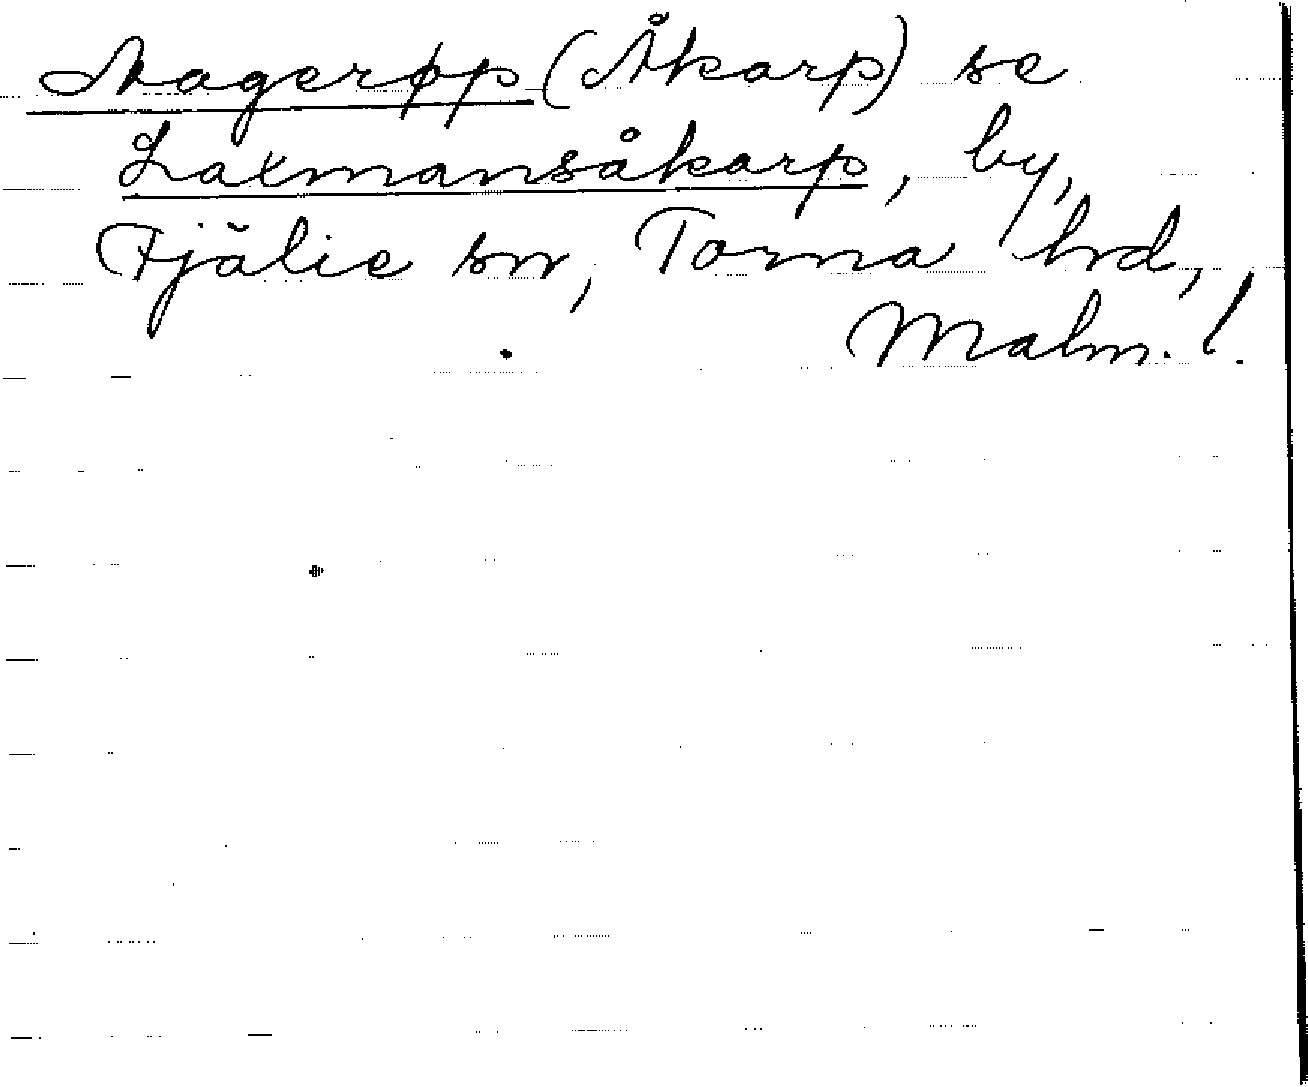 Aagerøp (Åkarp) se
Laxmansåkarp, by,
Fjälie sn, Torna hd,
Malm. l.